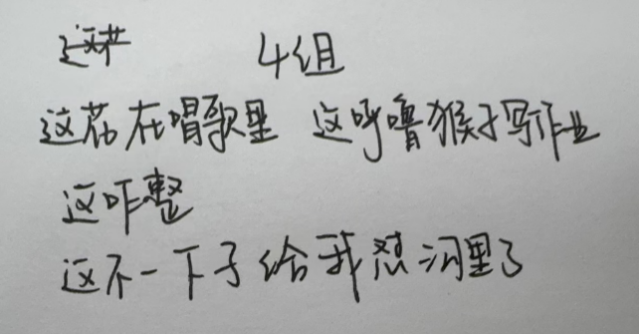 4组
这花在唱歌里 这呼噜猴子写作业
这咋整
这不一下子给我怼沟里了